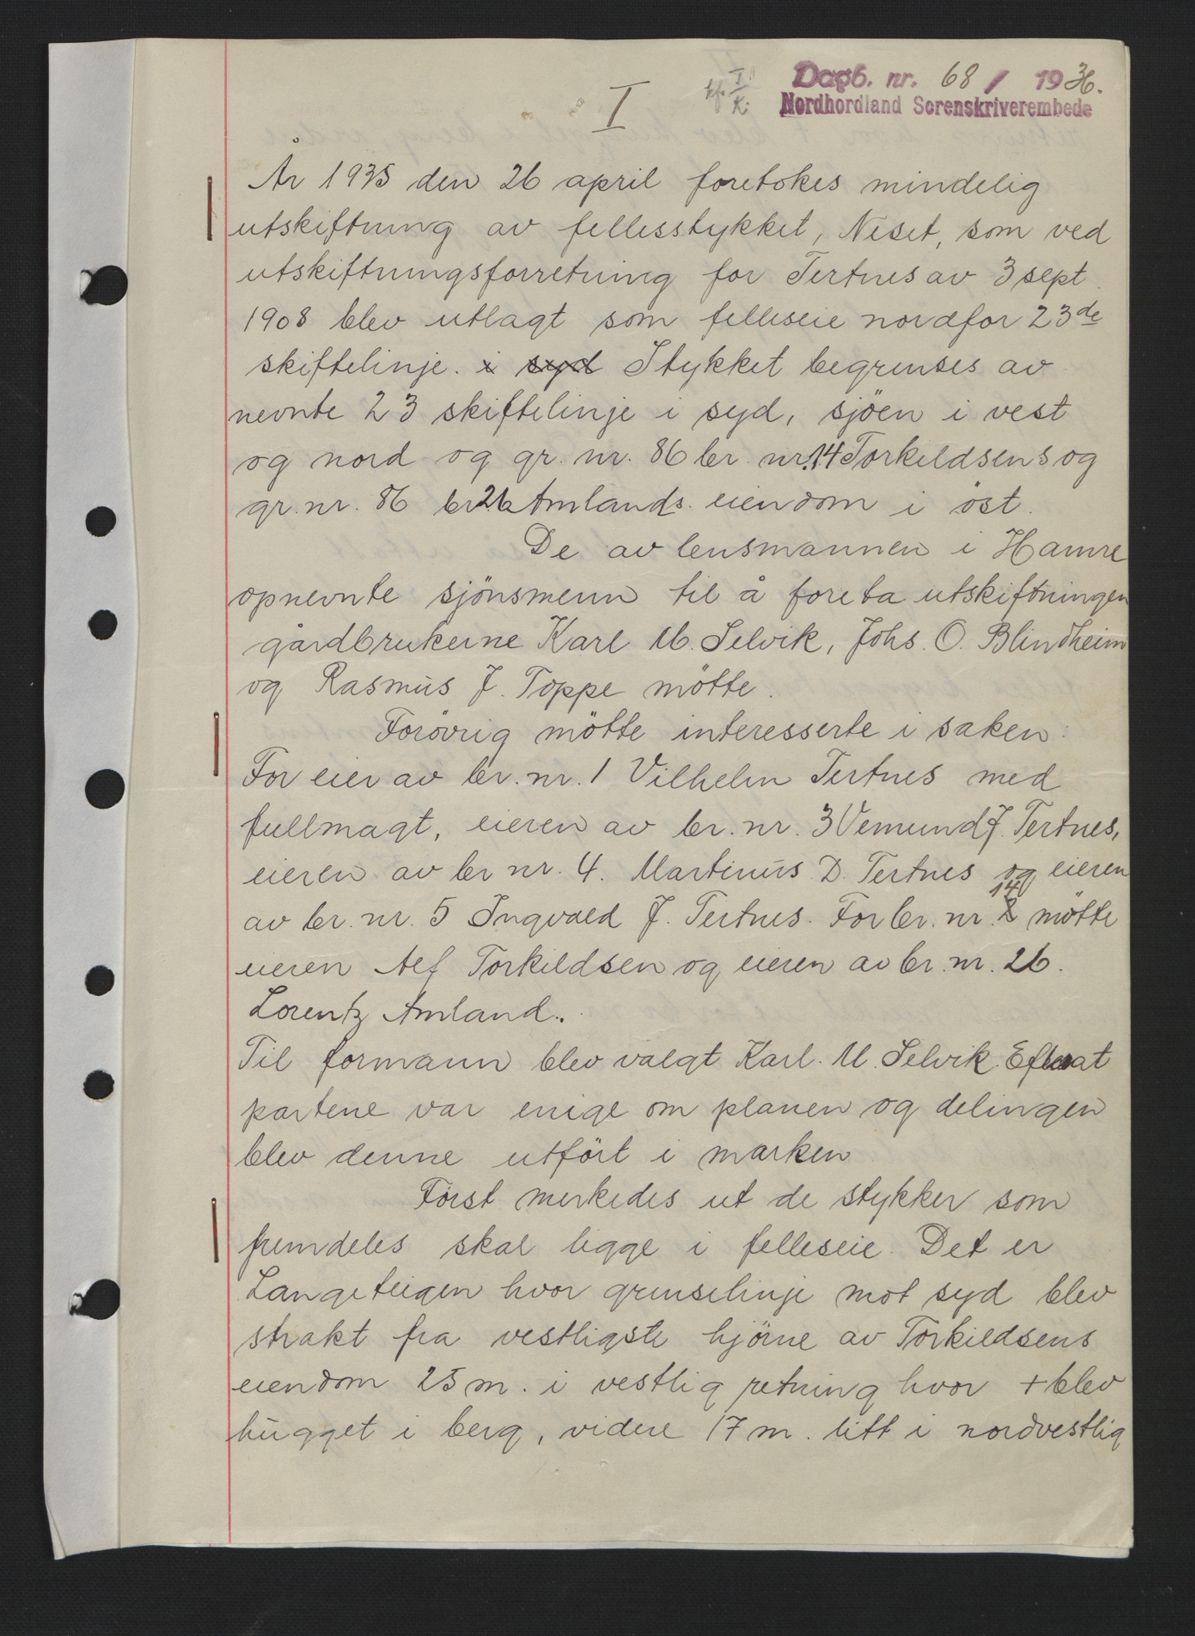 I
Dagb. nr. 68 / 1936.
Nordhordland Sorenskriverembede
År 1935 den 26 april foretokes mindelig
utskiftning av fellesstykket, Neset, som ved
utskiftningsforretning for Tertnes av 3 sept.
1908 blev utlagt som felleseie nordfor 23de
skiftelinje. i syd Stykket begrenses av
nevnte 23 skiftelinje i syd, sjöen i vest
og nord og gr. nr. 86 br. nr. 14 Torkildsens og
gr. nr. 86 br 26 Amlands eiendom i öst.
De av lensmannen i Hamre
opnevnte sjönsmenn til å foreta utskiftningen
gårdbrukerne Karl M. Selvik, Johs. O. Blindheim
og Rasmus J. Toppe mötte.
Forövrig mötte interesserte i saken:
For eier av br. nr. 1 Vilhelm Tertnes med
fullmagt, eieren av br. nr. 3 Vemund J. Tertnes,
eieren av br nr. 4. Martinus D. Tertnes og eieren
av br. nr. 5 Ingvald J. Tertnes. For br. nr. 14 mötte
eieren Alf Torkildsen og eieren av br. nr. 26.
Lorentz Amland.
Til formann blev valgt Karl. M. Selvik. Efterat
partene var enige om planen og delingen
blev denne utfört i marken
Först merkedes ut de stykker som
fremdeles skal ligge i felleseie. Det er
Langeteigen hvor grenselinje mot syd blev
strakt fra vestligste hjörne av Torkildsens
eiendom 25 m. i vestlig retning hvor + blev
hugget i berg, videre 17 m. litt i nordvestlig